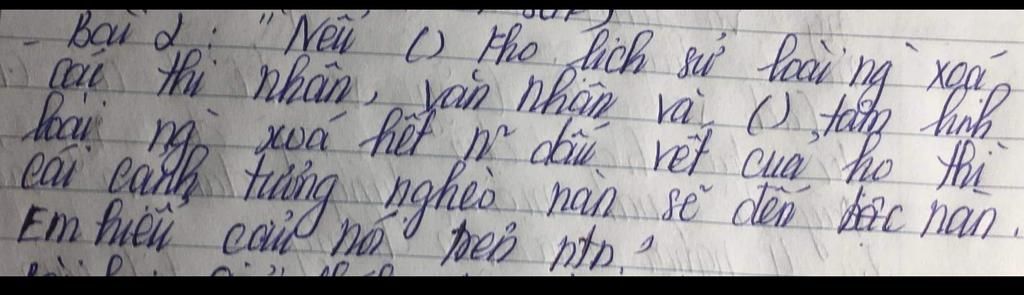 - Bài 2: "Nếu () kho lịch sử loài ng` xoá
các thi nhân, văn nhân và () tâm linh
loài ng` xoá hết n~ dấu vết của họ thì
cái cảnh tượng nghèo nàn sẽ đến bậc nào.
Em hiểu câu nói trên ntn?